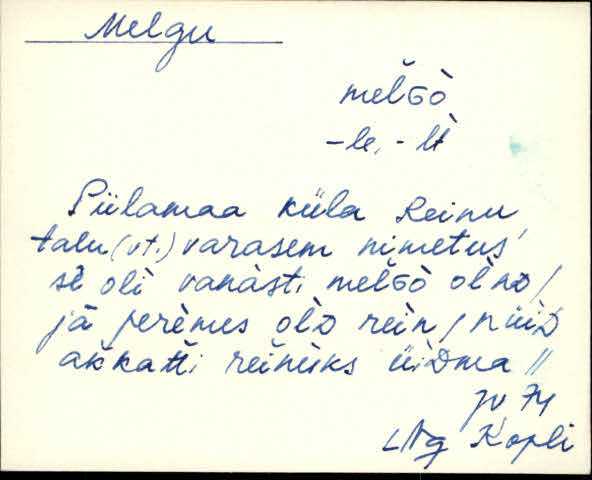 Melgu
mel̆Gò
-le, -lt
Piilamaa küla Reinu
talu (vt.) varasem nimetus
sè oli vanàsti mel̆Gò olnD /
jà perèmes olD rein / nüiD
akkatti reinùks üiDma //
JV 74
LNg Kopli